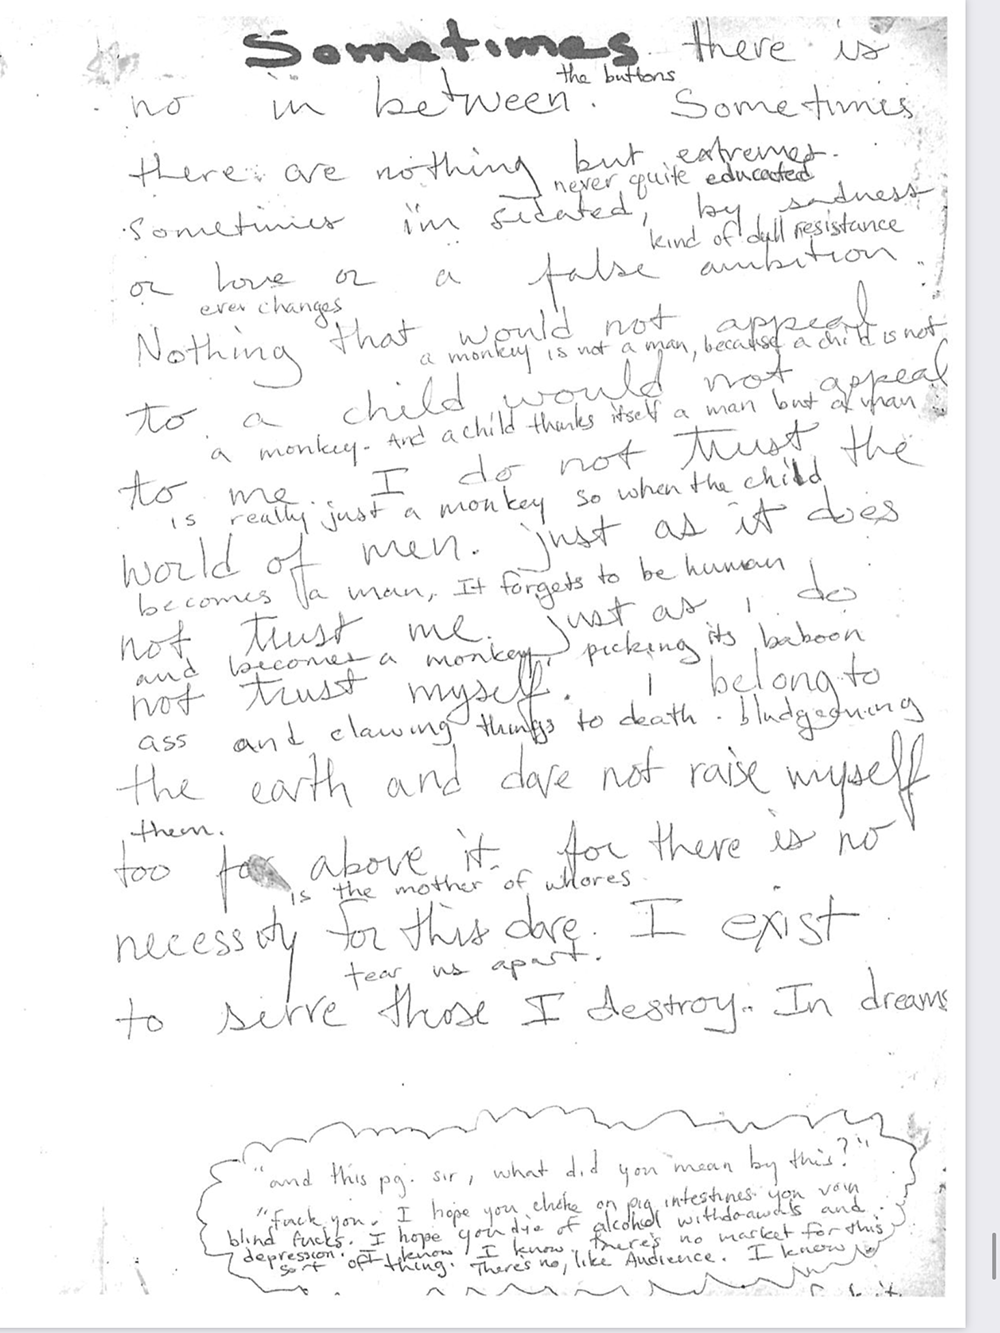 Sometimes there is
the buttons
no in between. Sometimes
there are nothing but extremes.
never quite educated
sometimes i'm sedated, by sadness
kind of dull resistance
or love or a false ambition.
ever changes
Nothing that would not appeal
a monkey is not a man, because a child is not
to a child would not appeal
a monkey. And a child thinks itself a man but a man
to me. I do not trust the
is really just a monkey so when the child
world of men. just as it does
becomes a man, It forgets to be human
not trust me. just as i do
and becomes a monkey, picking its baboon
not trust myself. I belong to
ass and clawing things to death. bludgeoning
the earth and dare not raise myself
them.
too far above it. for there is no
is the mother of whores
necessity for this dare. I exist
tear us apart.
to serve those I destroy. In dreams
"and this pg. sir, what did you mean by this?"
"fuck you. I hope you choke on pig intestines you vain
blind fucks. I hope you die of alcohol withdrawals and
depression. I know, I know, there's no market for this
sort of thing. There's no, like Audience. I know